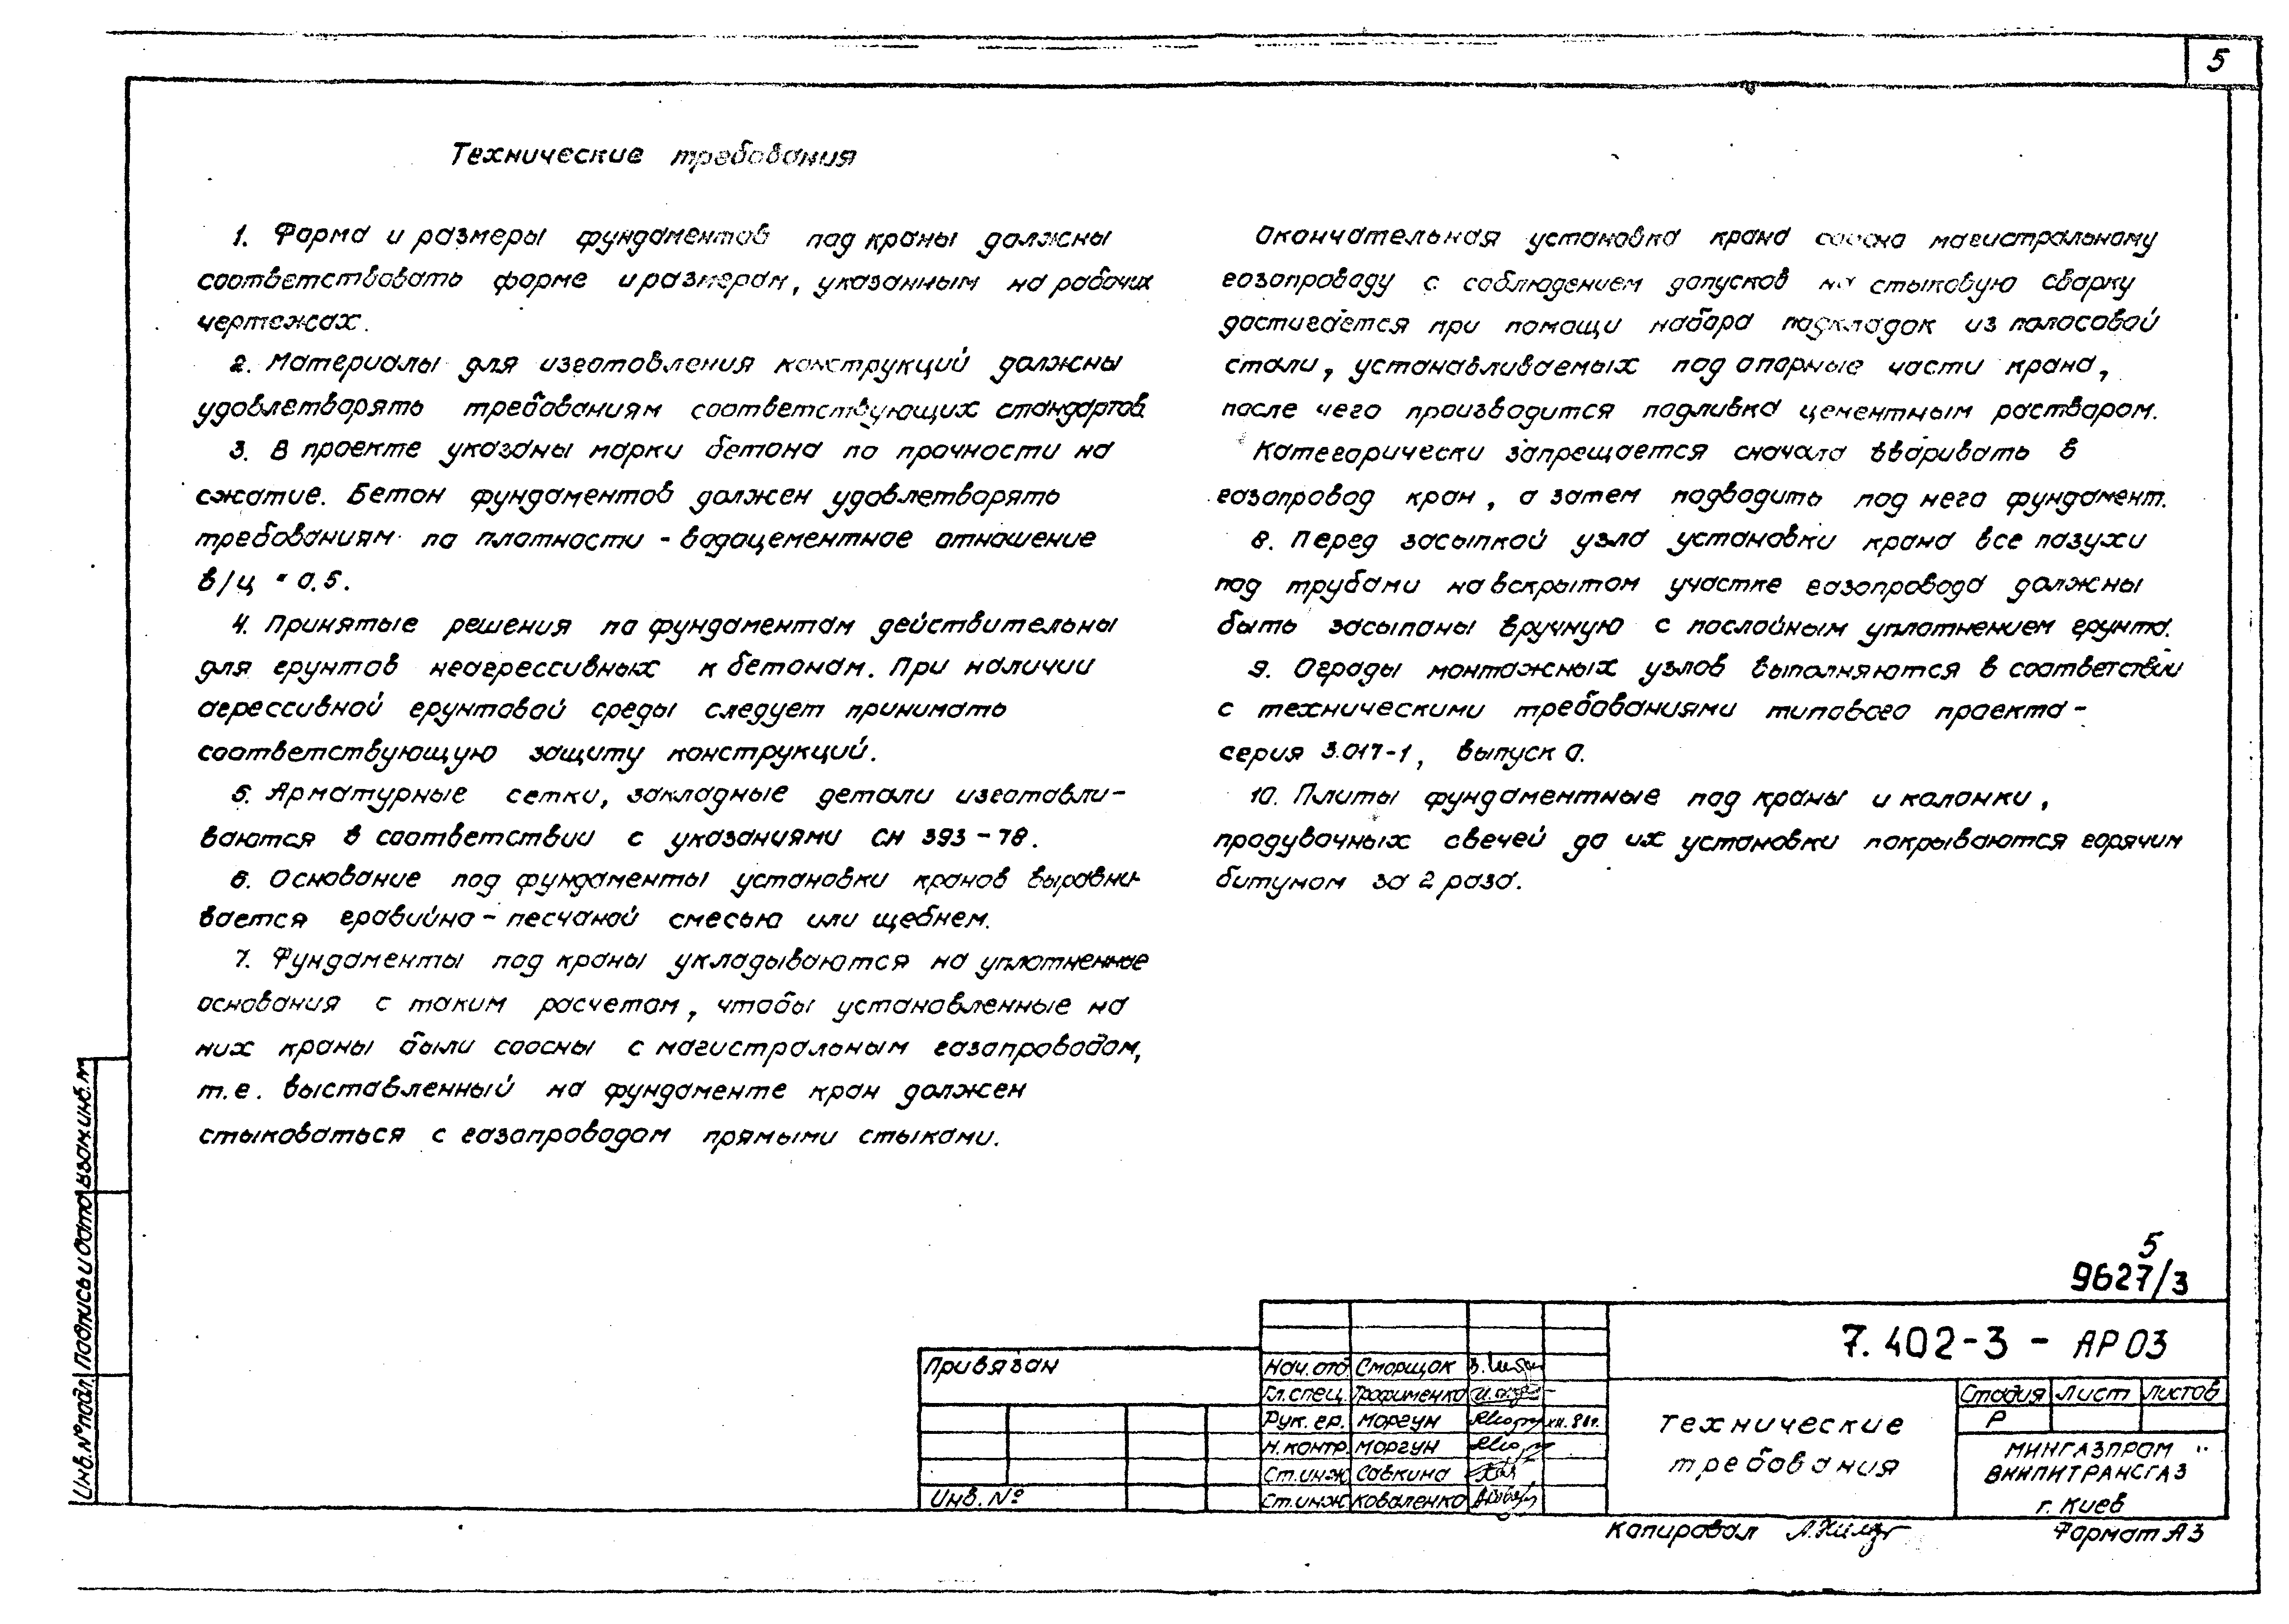 5
Технические требования
1. Форма и размеры фундаментов под краны должны
соответствовать форме и размерам, указанным на рабочих
чертежах.
2. Материалы для изготовления конструкций должны
удовлетворять требованиям соответствующих стандартов.
3. В проекте указаны марки бетона по прочности на
сжатие. Бетон фундаментов должен удовлетворять
требованиям по плотности - водоцементное отношение
в/ц = 0.5.
4. Принятые решения по фундаментам действительны
для грунтов неагрессивных к бетонам. При наличии
агрессивной грунтовой среды следует принимать
соответствующую защиту конструкций.
5. Арматурные сетки, закладные детали изготавли-
ваются в соответствии с указаниями СН 393-78.
6. Основание под фундаменты установки кранов выравни-
вается гравийно-песчаной смесью или щебнем.
7. Фундаменты под краны укладываются на уплотненное
основания с таким расчетом, чтобы установленные на
них краны были соосны с магистральным газопроводом,
т.е. выставленный на фундаменте кран должен
стыковаться с газопроводом прямыми стыками.
Окончательная установка крана соосно магистральному
газопроводу с соблюдением допусков на стыковую сварку
достигается при помощи набора подкладок из полосовой
стали, устанавливаемых под опорные части крана,
после чего производится подливка цементным раствором.
Категорически запрещается сначала вваривать в
газопровод кран, а затем подводить под него фундамент.
8. Перед засыпкой узла установки крана все пазухи
под трубами на вскрытом участке газопровода должны
быть засыпаны вручную с послойным уплотнением грунта.
9. Ограды монтажных узлов выполняются в соответствии
с техническими требованиями типового проекта -
серия 3.017-1, выпуск 0.
10. Плиты фундаментные под краны и колонки,
продувочных свечей до их установки покрываются горячим
битумом за 2 раза.
5
9627/3
7.402-3 - АР 03
Привязан
Инв. №
Нач. отд. Сморщок
Гл. спец. Трофименко
Рук. гр. Моргун
Н. контр. Моргун
Ст. инж Савкина
Ст. инж Коваленко
Технические
требования
Стадия Лист Листов
Р
МИНГАЗПРОМ
ВНИПИТРАНСГАЗ
г. Киев
Копировал
Формат А3
Инв. № подл. Подпись и дата Взам. инв. №